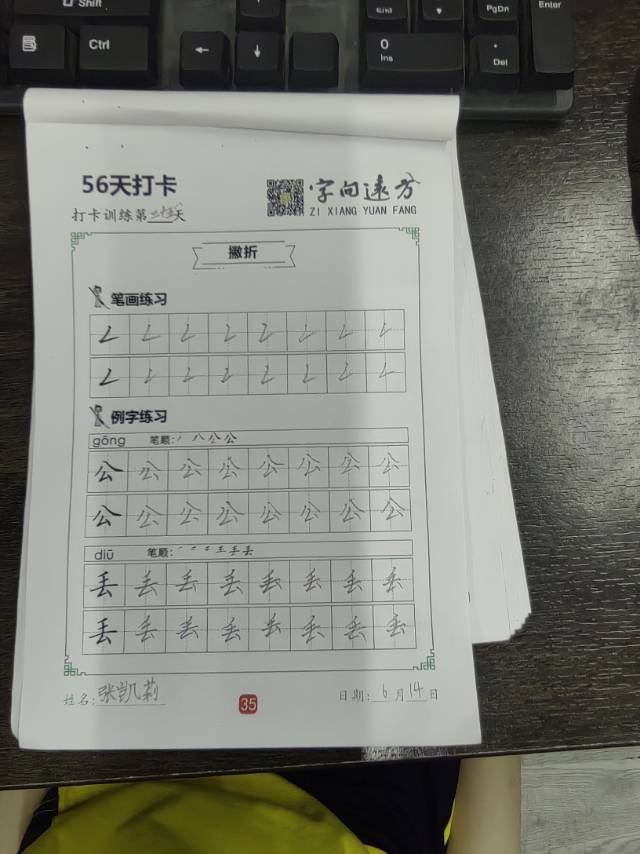 Shift
Ctrl
Ins
PgDn
Enter
0
Ins
Del
56天打卡
字向远方
打卡训练第 天
ZI XIANG YUAN FANG
撇折
笔画练习
例字练习
gōng 笔顺: 丿 八 公 公
公 公 公 公 公 公 公 公
公 公 公 公 公 公 公 公
diū 笔顺:
丢 丢 丢 丢 丢 丢 丢 丢
丢 丢 丢 丢 丢 丢 丢 丢
姓名: 张凯莉
35
日期: 6 月 14 日